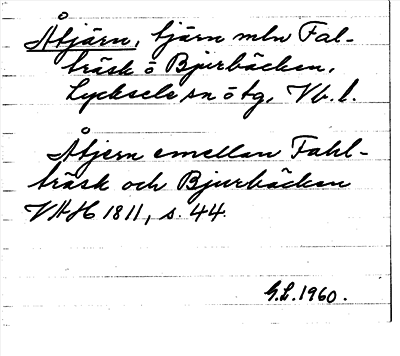 Åtjärn, tjärn mln Fal-
träsk o Bjurbäcken,
Lycksele sn o tg, Vb. l.
Åtjern emellan Fahl-
träsk och Bjurbäcken
VAH 1811, s. 44.
G.L. 1960.